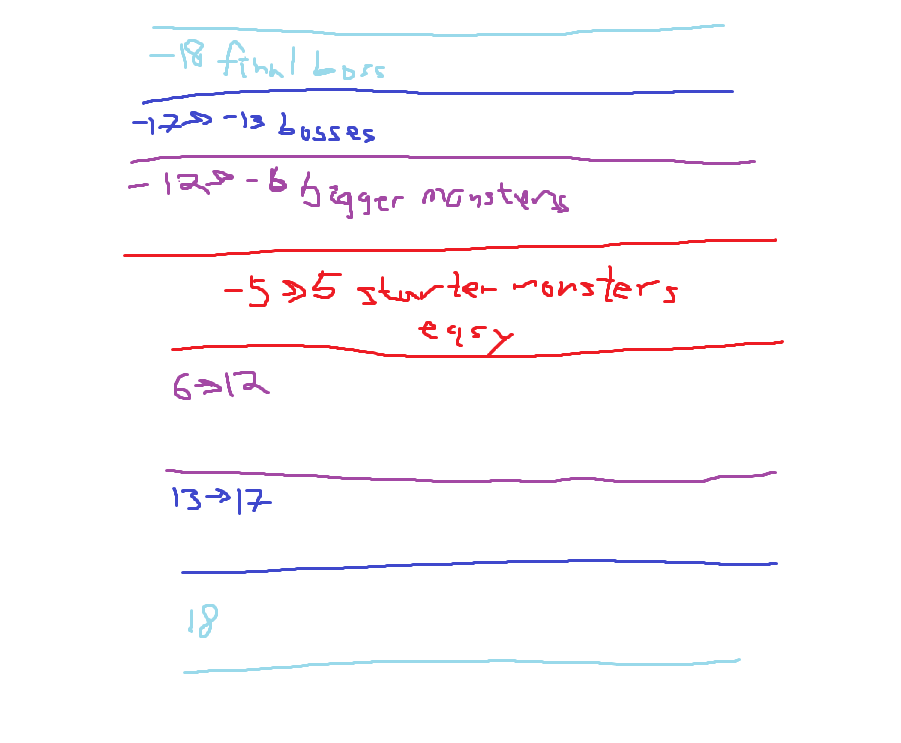 -18 final boss
-17 → -13 bosses
-12 → -6 bigger monsters
-5 → 5 starter monsters
easy
6 → 12
13 → 17
18